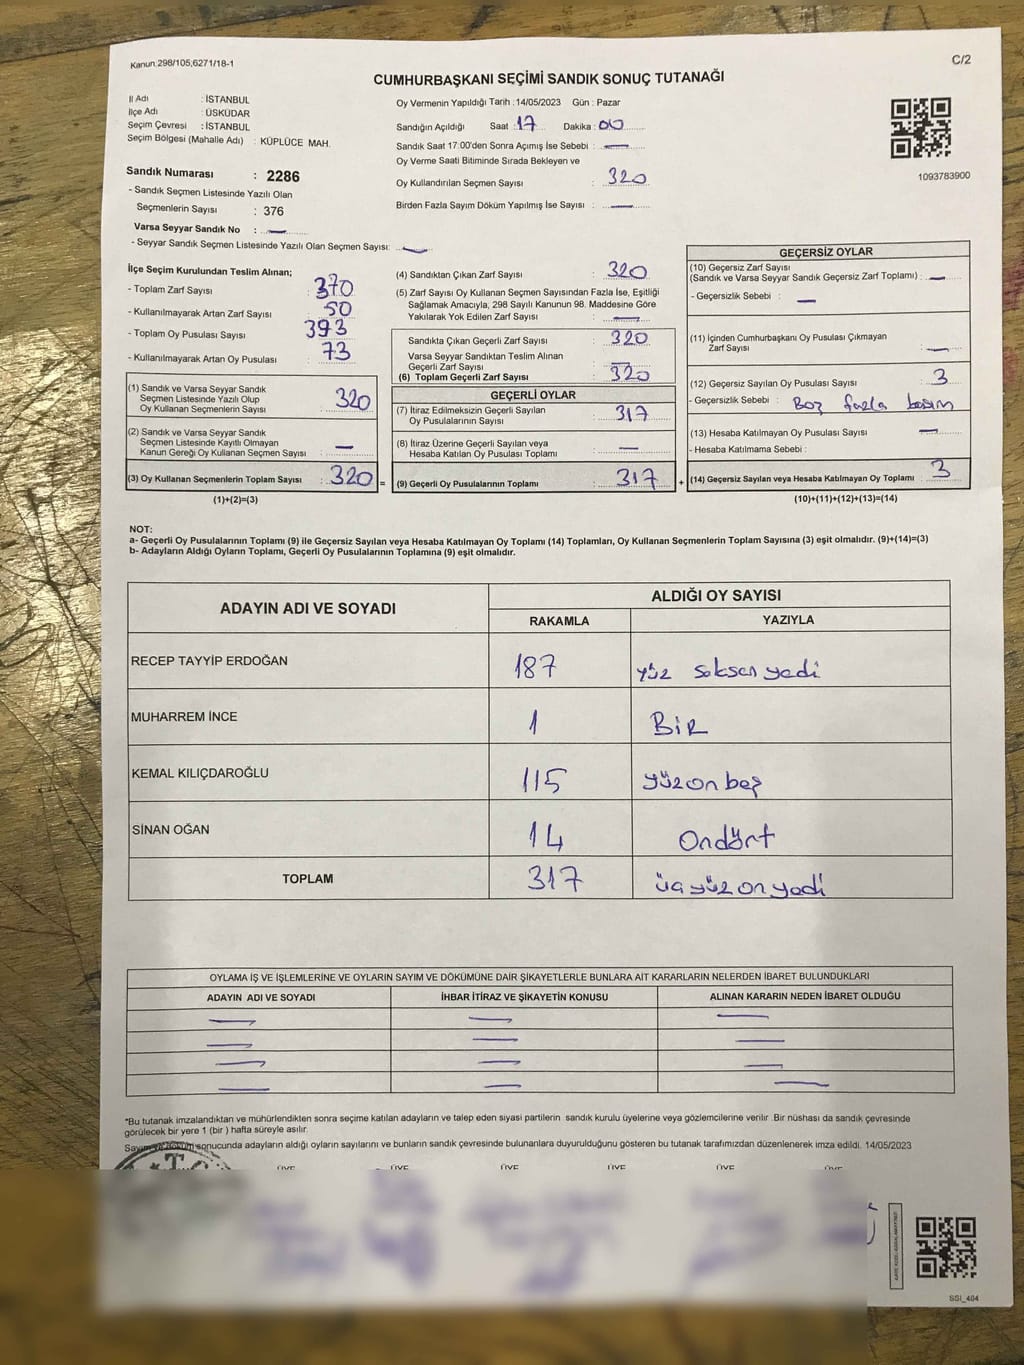 Kanun.298/105,6271/18-1
C/2
CUMHURBAŞKANI SEÇİMİ SANDIK SONUÇ TUTANAĞI
İl Adı : İSTANBUL
İlçe Adı : ÜSKÜDAR
Seçim Çevresi : İSTANBUL
Seçim Bölgesi (Mahalle Adı) : KÜPLÜCE MAH.
Sandık Numarası : 2286
- Sandık Seçmen Listesinde Yazılı Olan
Seçmenlerin Sayısı : 376
Varsa Seyyar Sandık No : —
- Seyyar Sandık Seçmen Listesinde Yazılı Olan Seçmen Sayısı: —
Oy Vermenin Yapıldığı Tarih : 14/05/2023 Gün : Pazar
Sandığın Açıldığı Saat : 17 Dakika : 00
Sandık Saat 17:00'den Sonra Açımış İse Sebebi : —
Oy Verme Saati Bitiminde Sırada Bekleyen ve
Oy Kullandırılan Seçmen Sayısı : 320
Birden Fazla Sayım Döküm Yapılmış İse Sayısı : —
1093783900
İlçe Seçim Kurulundan Teslim Alınan;
- Toplam Zarf Sayısı : 370
- Kullanılmayarak Artan Zarf Sayısı : 50
- Toplam Oy Pusulası Sayısı : 393
- Kullanılmayarak Artan Oy Pusulası : 73
(1) Sandık ve Varsa Seyyar Sandık
Seçmen Listesinde Yazılı Olup
Oy Kullanan Seçmenlerin Sayısı : 320
(2) Sandık ve Varsa Seyyar Sandık
Seçmen Listesinde Kayıtlı Olmayan
Kanun Gereği Oy Kullanan Seçmen Sayısı : —
(3) Oy Kullanan Seçmenlerin Toplam Sayısı : 320 =
(1)+(2)=(3)
(4) Sandıktan Çıkan Zarf Sayısı : 320
(5) Zarf Sayısı Oy Kullanan Seçmen Sayısından Fazla İse, Eşitliği
Sağlamak Amacıyla, 298 Sayılı Kanunun 98. Maddesine Göre
Yakılarak Yok Edilen Zarf Sayısı : —
Sandıkta Çıkan Geçerli Zarf Sayısı : 320
Varsa Seyyar Sandıktan Teslim Alınan
Geçerli Zarf Sayısı : —
(6) Toplam Geçerli Zarf Sayısı : 320
GEÇERLİ OYLAR
(7) İtiraz Edilmeksizin Geçerli Sayılan
Oy Pusulalarının Sayısı : 317
(8) İtiraz Üzerine Geçerli Sayılan veya
Hesaba Katılan Oy Pusulası Toplamı : —
(9) Geçerli Oy Pusulalarının Toplamı : 317 +
GEÇERSİZ OYLAR
(10) Geçersiz Zarf Sayısı
(Sandık ve Varsa Seyyar Sandık Geçersiz Zarf Toplamı) : —
- Geçersizlik Sebebi : —
(11) İçinden Cumhurbaşkanı Oy Pusulası Çıkmayan
Zarf Sayısı : —
(12) Geçersiz Sayılan Oy Pusulası Sayısı : 3
- Geçersizlik Sebebi : fazla basım
(13) Hesaba Katılmayan Oy Pusulası Sayısı : —
- Hesaba Katılmama Sebebi :
(14) Geçersiz Sayılan veya Hesaba Katılmayan Oy Toplamı : 3
(10)+(11)+(12)+(13)=(14)
NOT:
a- Geçerli Oy Pusulalarının Toplamı (9) ile Geçersiz Sayılan veya Hesaba Katılmayan Oy Toplamı (14) Toplamları, Oy Kullanan Seçmenlerin Toplam Sayısına (3) eşit olmalıdır. (9)+(14)=(3)
b- Adayların Aldığı Oyların Toplamı, Geçerli Oy Pusulalarının Toplamına (9) eşit olmalıdır.
ADAYIN ADI VE SOYADI ALDIĞI OY SAYISI
RAKAMLA YAZIYLA
RECEP TAYYİP ERDOĞAN 187 yüz seksen yedi
MUHARREM İNCE 1 BİR
KEMAL KILIÇDAROĞLU 115 yüz on beş
SİNAN OĞAN 14 Ondört
TOPLAM 317 üçyüz on yedi
OYLAMA İŞ VE İŞLEMLERİNE VE OYLARIN SAYIM VE DÖKÜMÜNE DAİR ŞİKAYETLERLE BUNLARA AİT KARARLARIN NELERDEN İBARET BULUNDUKLARI
ADAYIN ADI VE SOYADI İHBAR İTİRAZ VE ŞİKAYETİN KONUSU ALINAN KARARIN NEDEN İBARET OLDUĞU
— — —
— — —
— — —
— — —
*Bu tutanak imzalandıktan ve mühürlendikten sonra seçime katılan adayların ve talep eden siyasi partilerin sandık kurulu üyelerine veya gözlemcilerine verilir .Bir nüshası da sandık çevresinde
görülecek bir yere 1 (bir ) hafta süreyle asılır.
Sayım ve döküm sonucunda adayların aldığı oyların sayılarını ve bunların sandık çevresinde bulunanlara duyurulduğunu gösteren bu tutanak tarafımızdan düzenlenerek imza edildi. 14/05/2023
T.C.
ÜYE ÜYE ÜYE ÜYE ÜYE ÜYE
SSI_404